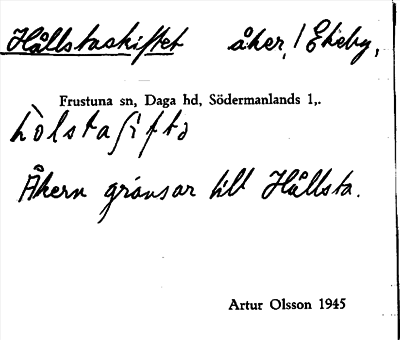 Hållstaskiftet åker, / Ekeby,
Frustuna sn, Daga hd, Södermanlands l,.
Åkern gränsar till Hållsta.
Artur Olsson 1945